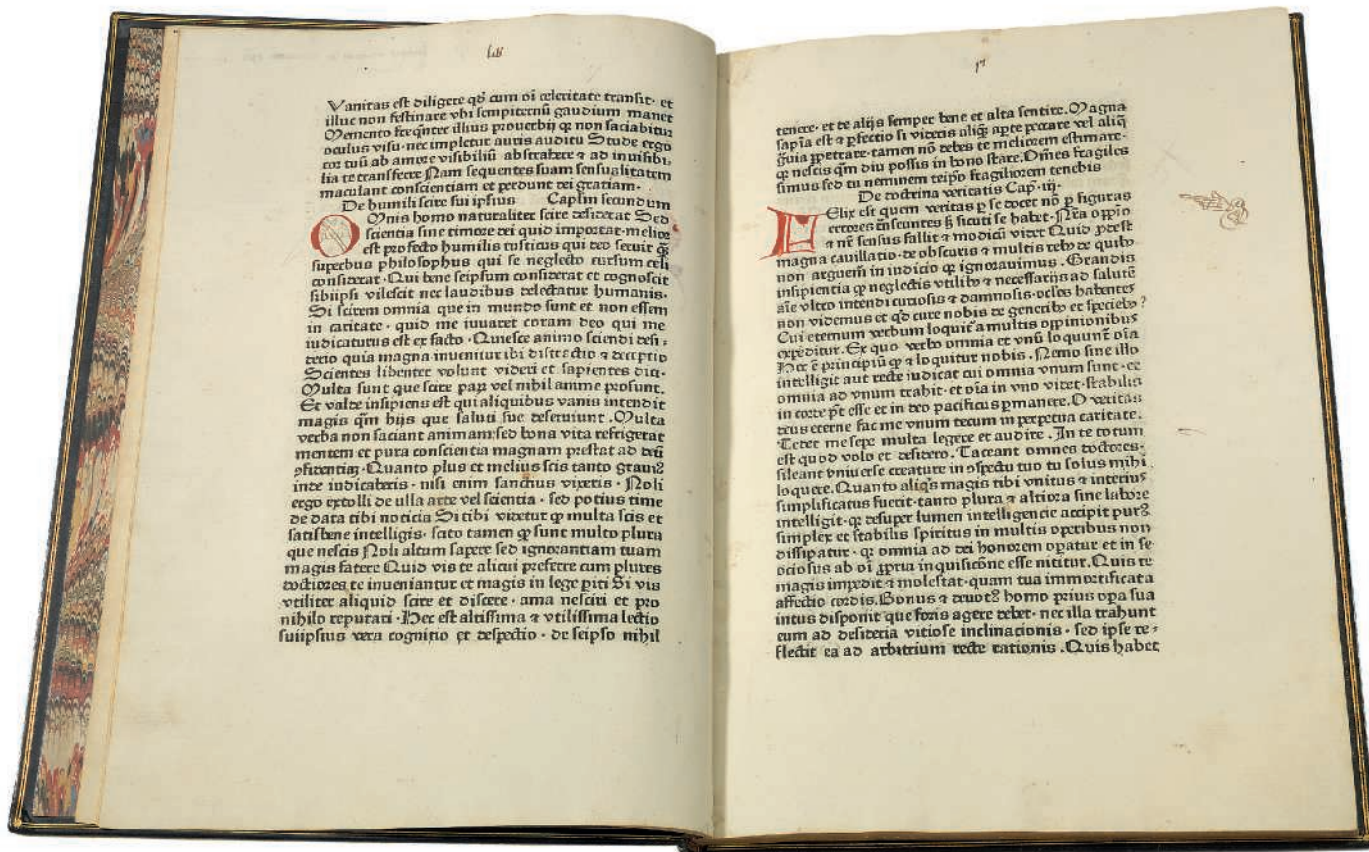 Vanitas est diligere qđ cum oī celeritate transit· et
illuc non festinare vbi sempiternū gaudium manet
Memento freqnter illius prouerbij qꝫ non saciabitur
oculus visu· nec impletur auris auditu Stude ergo
cor tuū ab amore visibiliū abstrahere ⁊ ad inuisibi⸗
lia te transferre Nam sequentes suam sensualitatem
maculant conscientiam et perdunt dei gratiam·
De humili scire sui ipsius Capłm secundum
OMnis homo naturaliter scire desiderat Sed
scientia sine timore dei quid importat· melior
est profecto humilis rusticus qui deo seruit qꝫ̄
superbus philosophus qui se neglecto cursum celi
considerat· Qui bene seipsum considerat et cognoscit
sibiipsi vilescit nec laudibus delectatur humanis·
Si scirem omnia que in mundo sunt et non essem
in caritate· quid me iuuaret coram deo qui me
iudicaturus est ex facto· Quiesce animo sciendi desi⸗
derio quia magna inuenitur ibi distractio ⁊ deceptio
Scientes libenter volunt videri et sapientes dici·
Multa sunt que scire paꝝ vel nihil anime prosunt.
Et valde insipiens est qui aliquibus vanis intendit
magis qm̄ hijs que saluti sue deseruiunt. Multa
verba non saciant animam: sed bona vita refrigerat
mentem et pura conscientia magnam prestat ad deū
ꝯfidentiaꝫ· Quanto plus et melius scis tanto grauiꝰ
inde iudicaberis· nisi enim sanctius vixeris· Noli
ergo extolli de ulla arte vel scientia· sed potius time
de data tibi noticia Si tibi videtur qꝫ multa scis et
satisbene intelligis· scito tamen qꝫ sunt multo plura
que nescis Noli altum sapere sed ignorantiam tuam
magis fatere Quid vis te alicui preferre cum plures
doctiores te inueniantur et magis in lege ꝑiti Si vis
vtiliter aliquid scire et discere· ama nesciri et pro
nihilo reputari· Hec est altissima ⁊ vtilissima lectio
suiipsius vera cognitio et despectio· de seipso nihil
tenere· et de alijs semper bene et alta sentire. Magna
sapīa est ⁊ ꝑfectio si videris aliqꝫ̄ apte peccare vel aliq̄
g̃uia ꝑpetrare· tamen nō debes te meliorem estimare·
qꝫ nescis qm̄ diu possis in bono stare. Om̄es fragiles
simus sed tu neminem teipo̅ fragiliorem tenebis
De doctrina veritatis Cap· iij·
FElix est quem veritas ꝑ se docet nō ꝑ figuras
errores t̄nseuntes ꝫ sicuti se habet· Nr̄a oppīo
⁊ nr̄ sensus fallit ⁊ modicū videt Quid ꝓdest
magna cauillatio· de obscuris ⁊ multis rebꝫ de quibꝫ
non arguem̄ in iudicio qꝫ ignorauimus. Grandis
insipientia qꝫ neglectis vtilibꝫ ⁊ necessarijs ad salutē
aīe vltro intendi curiosis ⁊ damnosis· oc̄los habentes
non videmus et qđ cure nobis de generibꝫ et speciebꝫ?
Cui eternum verbum loquit̃ a multis oppinionibus
expeditur. Ex quo verbo omnia et vnū loquunt̃ oīa
Hec ē principiū qꝫ ⁊ loquitur nobis. Nemo sine illo
intelligit aut recte iudicat cui omnia vnum sunt· et
omnia ad vnum trahit· et oīa in vno videt· stabilis
in corde pt̄ esse et in deo pacificus ꝑmanere. O veritas
deus eterne fac me vnum tecum in perpetua caritate.
Tedet me sepe multa legere et audire. In te totum
est quod volo et desidero. Taceant omnes doctores·
sileant vniuerse creature in ꝯspectu tuo tu solus mihi
loquere. Quanto aliqꝭs magis tibi vnitus ⁊ interius
simplificatus fuerit· tanto plura ⁊ altiora sine labore
intelligit· qꝫ desuper lumen intelligencie accipit purꝰ
simplex et stabilis spiritus in multis operibus non
dissipatur· qꝫ omnia ad dei honorem oꝑatur et in se
ociosus ab oī ꝓpria inquisicōne esse nititur. Quis te
magis impedit ⁊ molestat· quam tua immortificata
affectio cordis. Bonus ⁊ deuotꝰ homo prius oꝑa sua
intus disponit que foris agere debet· nec illa trahunt
eum ad desideria vitiose inclinacionis· sed ipse re⸗
flectit ea ad arbitrium recte rationis. Quis habet